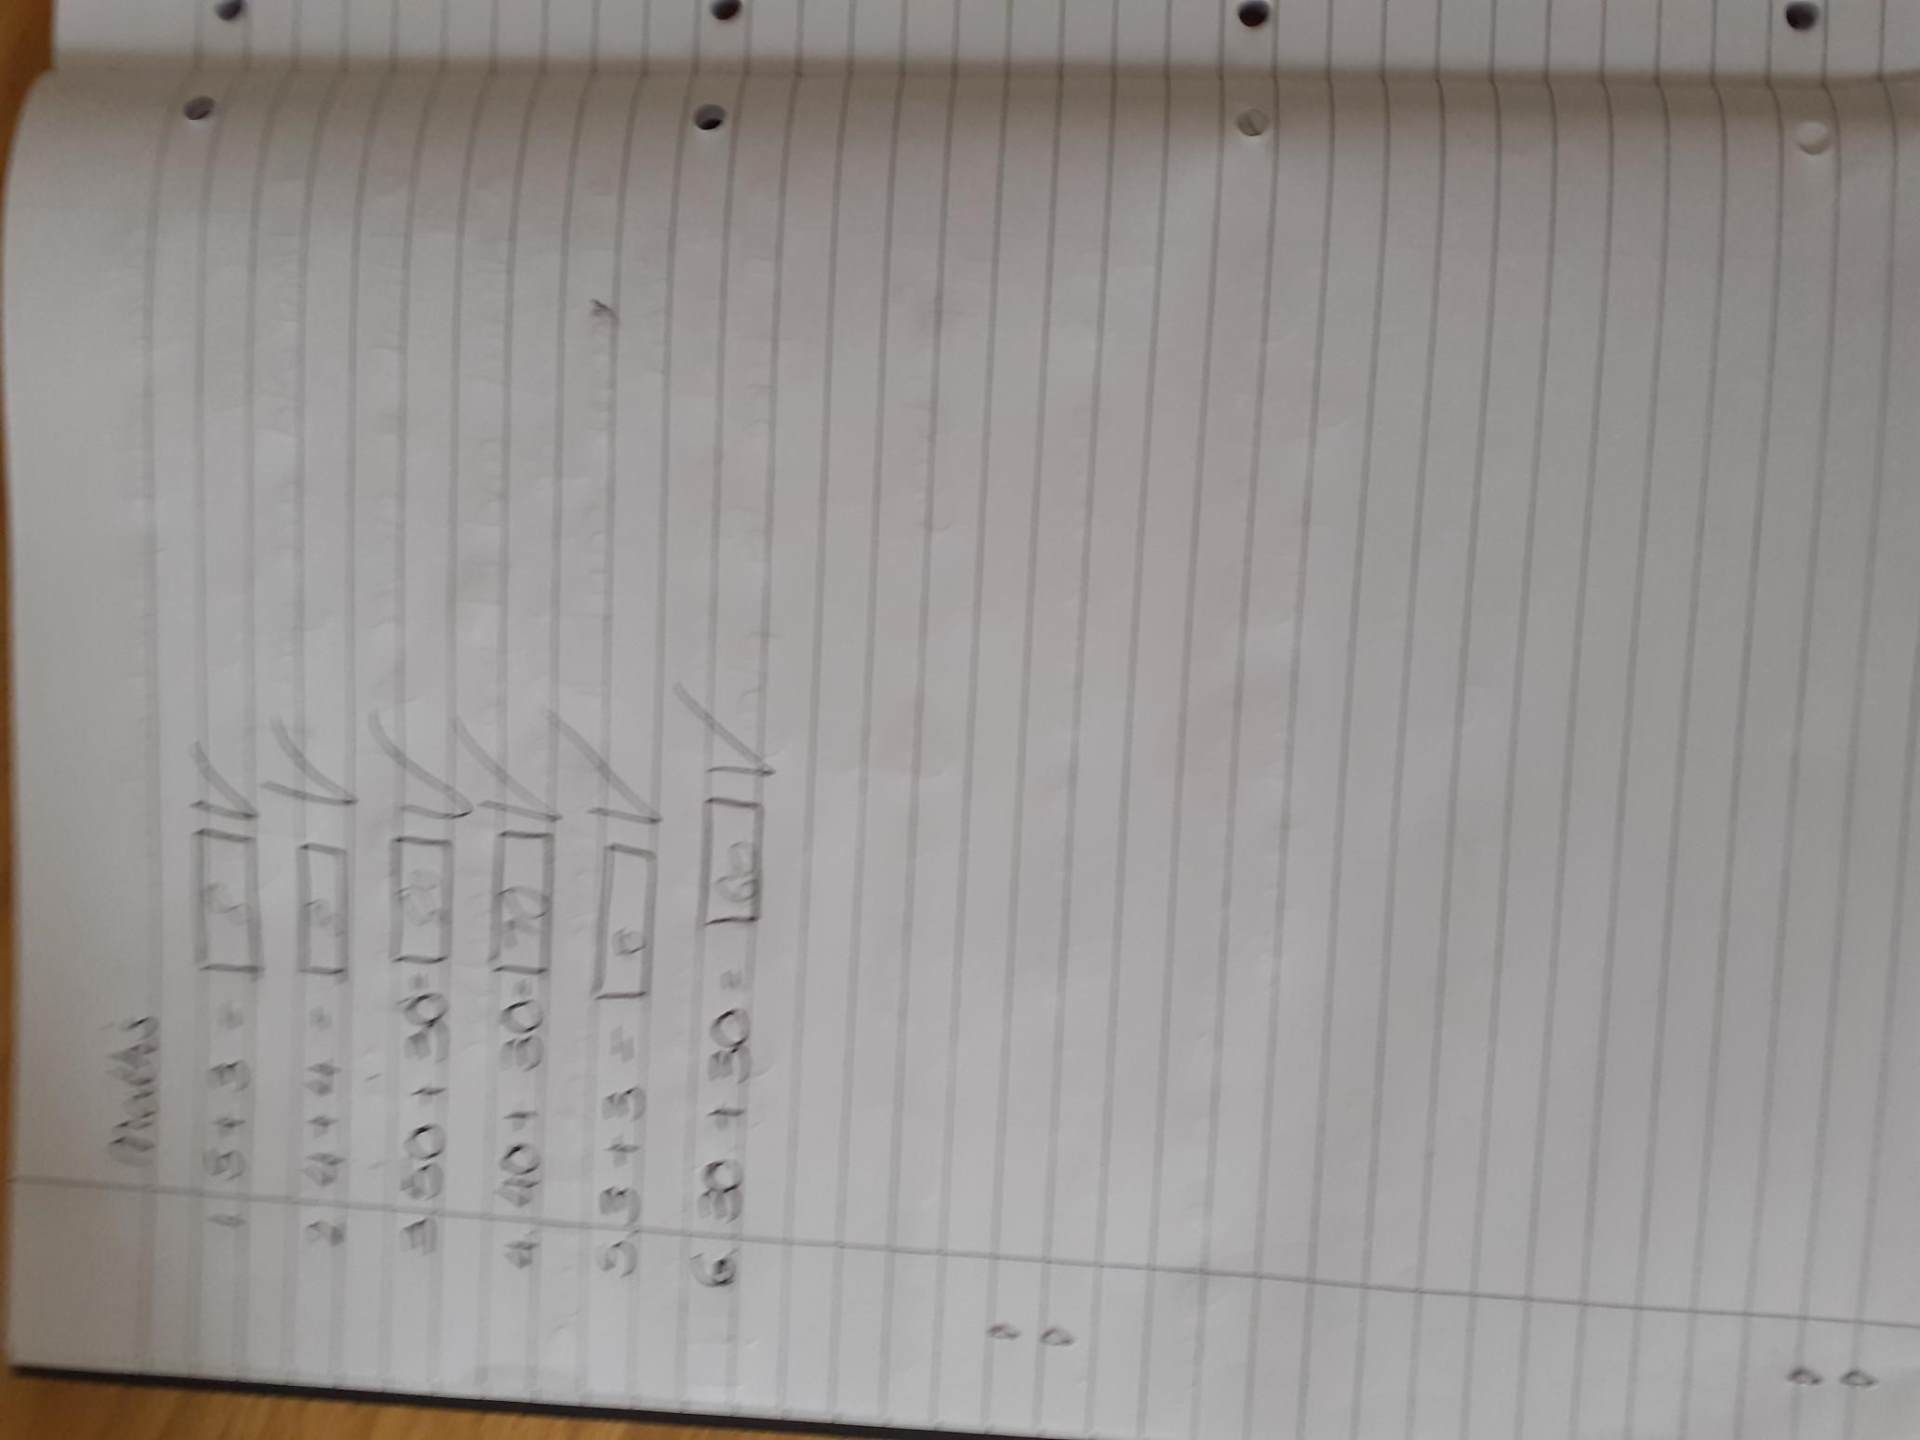 1. 5 + 3 = 8
2 4 + 4 = 8
3. 50 + 30 = 80
4. 40 + 30 = 70
5. 3 + 3 = 6
6. 30 + 30 = 60